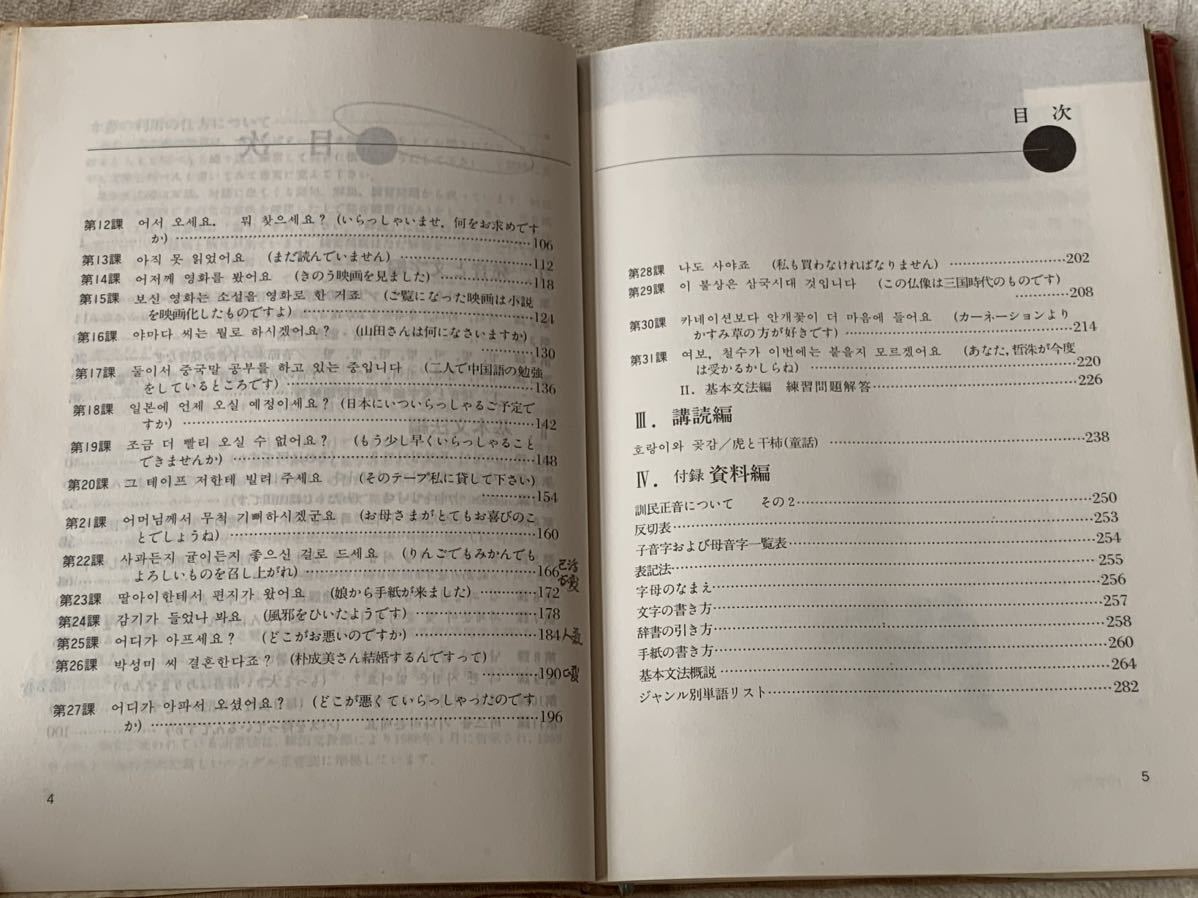 第12課 어서 오세요. 뭐 찾으세요? (いらっしゃいませ, 何をお求めです
か) 106
第13課 아직 못 읽었어요 (まだ読んでいません) 112
第14課 어저께 영화를 봤어요 (きのう映画を見ました) 118
第15課 보신 영화는 소설을 영화로 한 거죠 (ご覧になった映画は小説
を映画化したものですよ) 124
第16課 야마다 씨는 뭘로 하시겠어요? (山田さんは何になさいますか)
130
第17課 둘이서 중국말 공부를 하고 있는 중입니다 (二人で中国語の勉強
をしているところです) 136
第18課 일본에 언제 오실 예정이세요? (日本にいついらっしゃるご予定で
すか) 142
第19課 조금 더 빨리 오실 수 없어요? (もう少し早くいらっしゃること
できませんか) 148
第20課 그 테이프 저한테 빌려 주세요 (そのテープ私に貸して下さい)
154
第21課 어머님께서 무척 기뻐하시겠군요 (お母さまがとてもお喜びのこ
とでしょうね) 160
第22課 사과든지 귤이든지 좋으신 걸로 드세요 (りんごでもみかんでも
よろしいものを召し上がれ) 166
第23課 딸아이한테서 편지가 왔어요 (娘から手紙が来ました) 172
第24課 감기가 들었나 봐요 (風邪をひいたようです) 178
第25課 어디가 아프세요? (どこがお悪いのですか) 184
第26課 박성미 씨 결혼한다죠? (朴成美さん結婚するんですって)
190
第27課 어디가 아파서 오셨어요? (どこが悪くていらっしゃったのです
か) 196
4
目 次
第28課 나도 사야죠 (私も買わなければなりません) 202
第29課 이 불상은 삼국시대 것입니다 (この仏像は三国時代のものです)
208
第30課 카네이션보다 안개꽃이 더 마음에 들어요 (カーネーションより
かすみ草の方が好きです) 214
第31課 여보, 철수가 이번에는 붙을지 모르겠어요 (あなた, 哲洙が今度
は受かるかしらね) 220
II. 基本文法編 練習問題解答 226
III. 講読編
호랑이와 곶감/虎と干柿(童話) 238
IV. 付録 資料編
訓民正音について その2 250
反切表 253
子音字および母音字一覧表 254
表記法 255
字母のなまえ 256
文字の書き方 257
辞書の引き方 258
手紙の書き方 260
基本文法概説 264
ジャンル別単語リスト 282
5